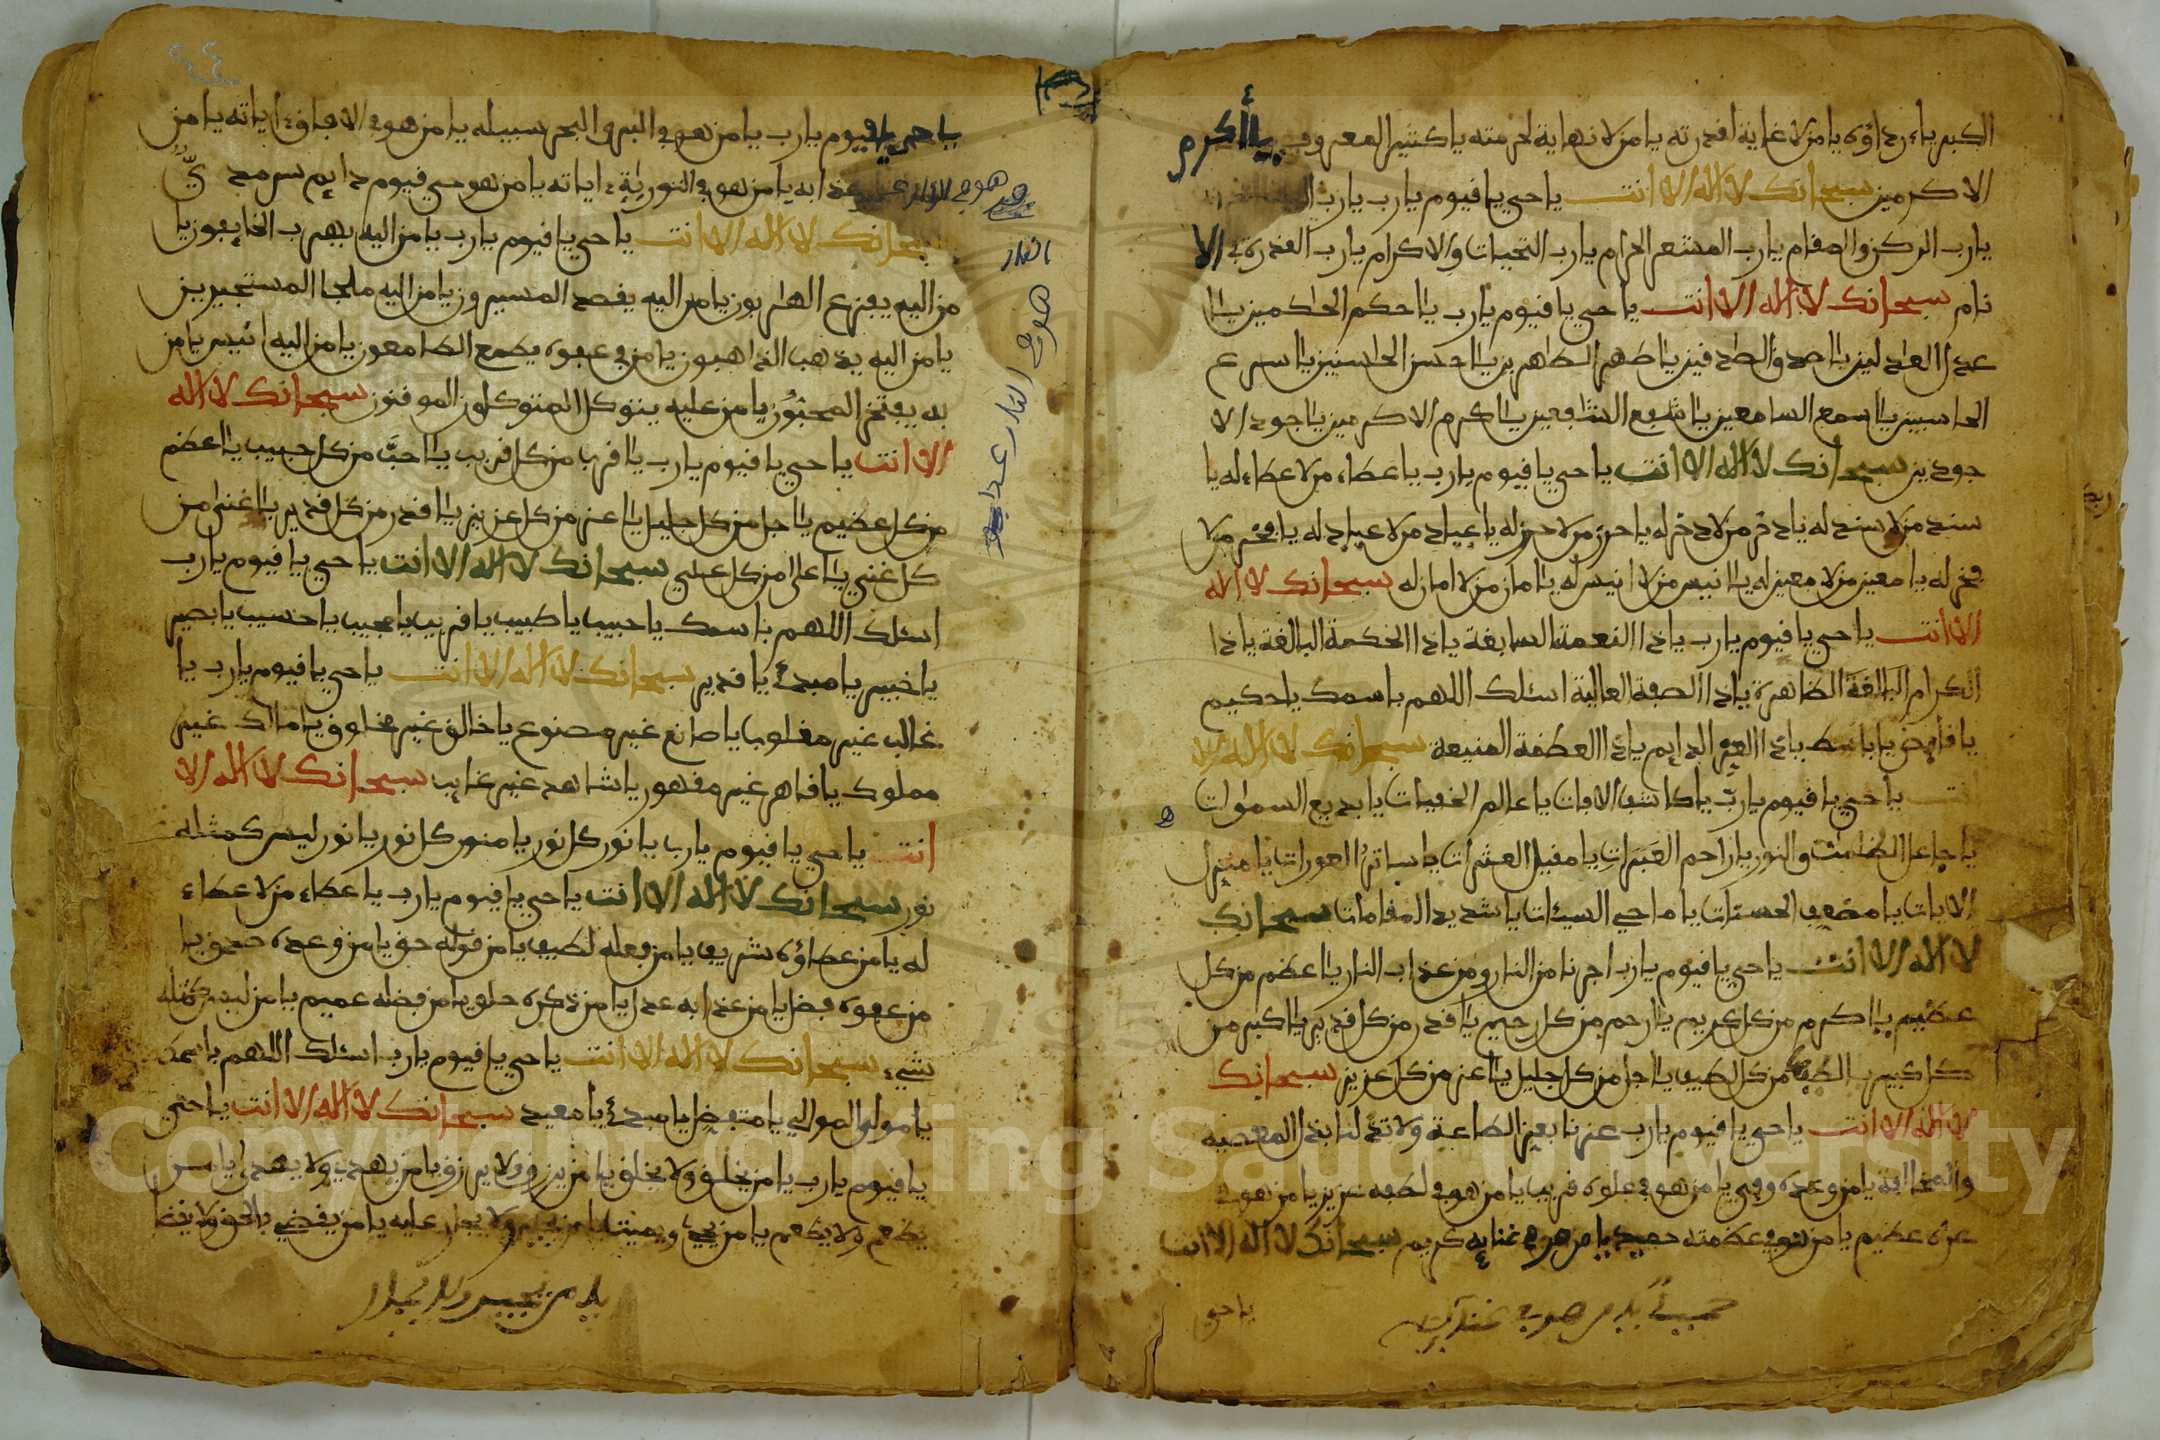 الكبرياء رداؤه يا من لا غاية لقدرته يا من لا نهاية لحرمته يا كثير المعروف يا أكرم
الاكرمين سبحانك لا اله الا انت يا حي يا قيوم يا رب يا رب
يا رب الركن والمقام يا رب المشعر الحرام يا رب التحيات والاكرام يا رب القدرة الا
نام سبحانك لا اله الا انت يا حي يا قيوم يا رب يا احكم الحاكمين يا ا
عدل العادلين يا اصدق الصادقين يا اطهر الطاهرين يا احسن الحاسنين يا اسرع
الحاسبين يا اسمع السامعين يا اشفع الشافعين يا اكرم الاكرمين يا اجود الا
جودين سبحانك لا اله الا انت يا حي يا قيوم يا رب يا عطاء من لا عطاء له يا
سند من لا سند له يا ذخر من لا ذخر له يا حرز من لا حرز له يا غياث من لا غياث له يا فخر من لا
فخر له يا معين من لا معين له يا انيس من لا انيس له يا امان من لا امان له سبحانك لا اله
الا انت يا حي يا قيوم يا رب يا ذا النعمة السابغة يا ذا الحكمة البالغة يا ذا
الكرام البالغة الظاهرة يا ذا الصفة العالية اسئلك اللهم باسمك يا حكيم
يا قابض يا باسط يا ذا العز الدايم يا ذا العظمة المنيعة سبحانك لا اله الا
انت يا حي يا قيوم يا رب يا كاشف الافات يا عالم الخفيات يا بديع السموات
يا جاعل الظلمات والنور يا راحم العبرات يا مقيل العثرات يا ساتر العورات يا منزل
الايات يا مضعف الحسنات يا ماحي السيئات يا شديد المقامات سبحانك
لا اله الا انت يا حي يا قيوم يا رب اجرنا من النار ومن عذاب النار يا اعظم من كل
عظيم يا اكرم من كل كريم يا ارحم من كل رحيم يا اقدر من كل قدير يا اكبر من
كل كبير يا الطف من كل لطيف يا اجل من كل جليل يا اعز من كل عزيز سبحانك
لا اله الا انت يا حي يا قيوم يا رب عزنا بعز الطاعة ولا تذلنا بذل المعصية
والمخالفة يا من وعده وفي يا من هو في علوه قريب يا من هو في لطفه عزيز يا من هو في
عزه عظيم يا من هو في عظمته حميد يا من هو في غنايه كريم سبحانك لا اله الا انت
يا حي
يا حي يا قيوم يا رب يا من هو في البر والبحر سبيله يا من هو في الافاق اياته يا من
عذابه يا من هو في التورية اياته يا من هو حي قيوم دايم سرمد يّ
سبحانك لا اله الا انت يا حي يا قيوم يا رب يا من اليه يهرب الخايفون يا
من اليه يفزع الهاربون يا من اليه يقصد المسيرون يا من اليه ملجا المستجيرين
يا من اليه يذهب الذاهبون يا من في عفوه يطمع الطامعون يا من اليه انيس يا من
به يفتخر المحبون يا من عليه يتوكل المتوكلون الموقنون سبحانك لا اله
الا انت يا حي يا قيوم يا رب يا اقرب من كل قريب يا احب من كل حبيب يا اعظم
من كل عظيم يا اجل من كل جليل يا اعز من كل عزيز يا اقدر من كل قدير يا اغنى من
كل غني يا اعلى من كل علي سبحانك لا اله الا انت يا حي يا قيوم يا رب
اسئلك اللهم باسمك يا حبيب يا طبيب يا قريب يا مجيب يا حسيب يا بصير
يا خبير يا مبدئ يا قدير سبحانك لا اله الا انت يا حي يا قيوم يا رب يا
غالب غير مغلوب يا صانع غير مصنوع يا خالق غير مخلوق يا مالك غير
مملوك يا قاهر غير مقهور يا شاهد غير غايب سبحانك لا اله الا
انت يا حي يا قيوم يا رب يا نور كل نور يا منور كل نور يا نور ليس كمثله
نور سبحانك لا اله الا انت يا حي يا قيوم يا رب يا عطاء من لا عطاء
له يا من عطاؤه شريف يا من فعله لطيف يا من قوله حق يا من وعده صدق يا
من عفوه فضل يا من عذابه عدل يا من ذكره حلو يا من فضله عميم يا من ليس كمثله
شيء سبحانك لا اله الا انت يا حي يا قيوم يا رب اسئلك اللهم باسمك
يا مولى الموالي يا متفضل يا مبدئ يا معيد سبحانك لا اله الا انت يا حي
يا قيوم يا رب يا من يخلق ولا يخلق يا من يرزق ولا يرزق يا من يهدي ولا يهدى يا من
يطعم ولا يطعم يا من يحيي ويميت يا من يجير ولا يجار عليه يا من يقضي بالحق ولا يقضا
يا من يجير ولا يجار
هو في النار عدابه